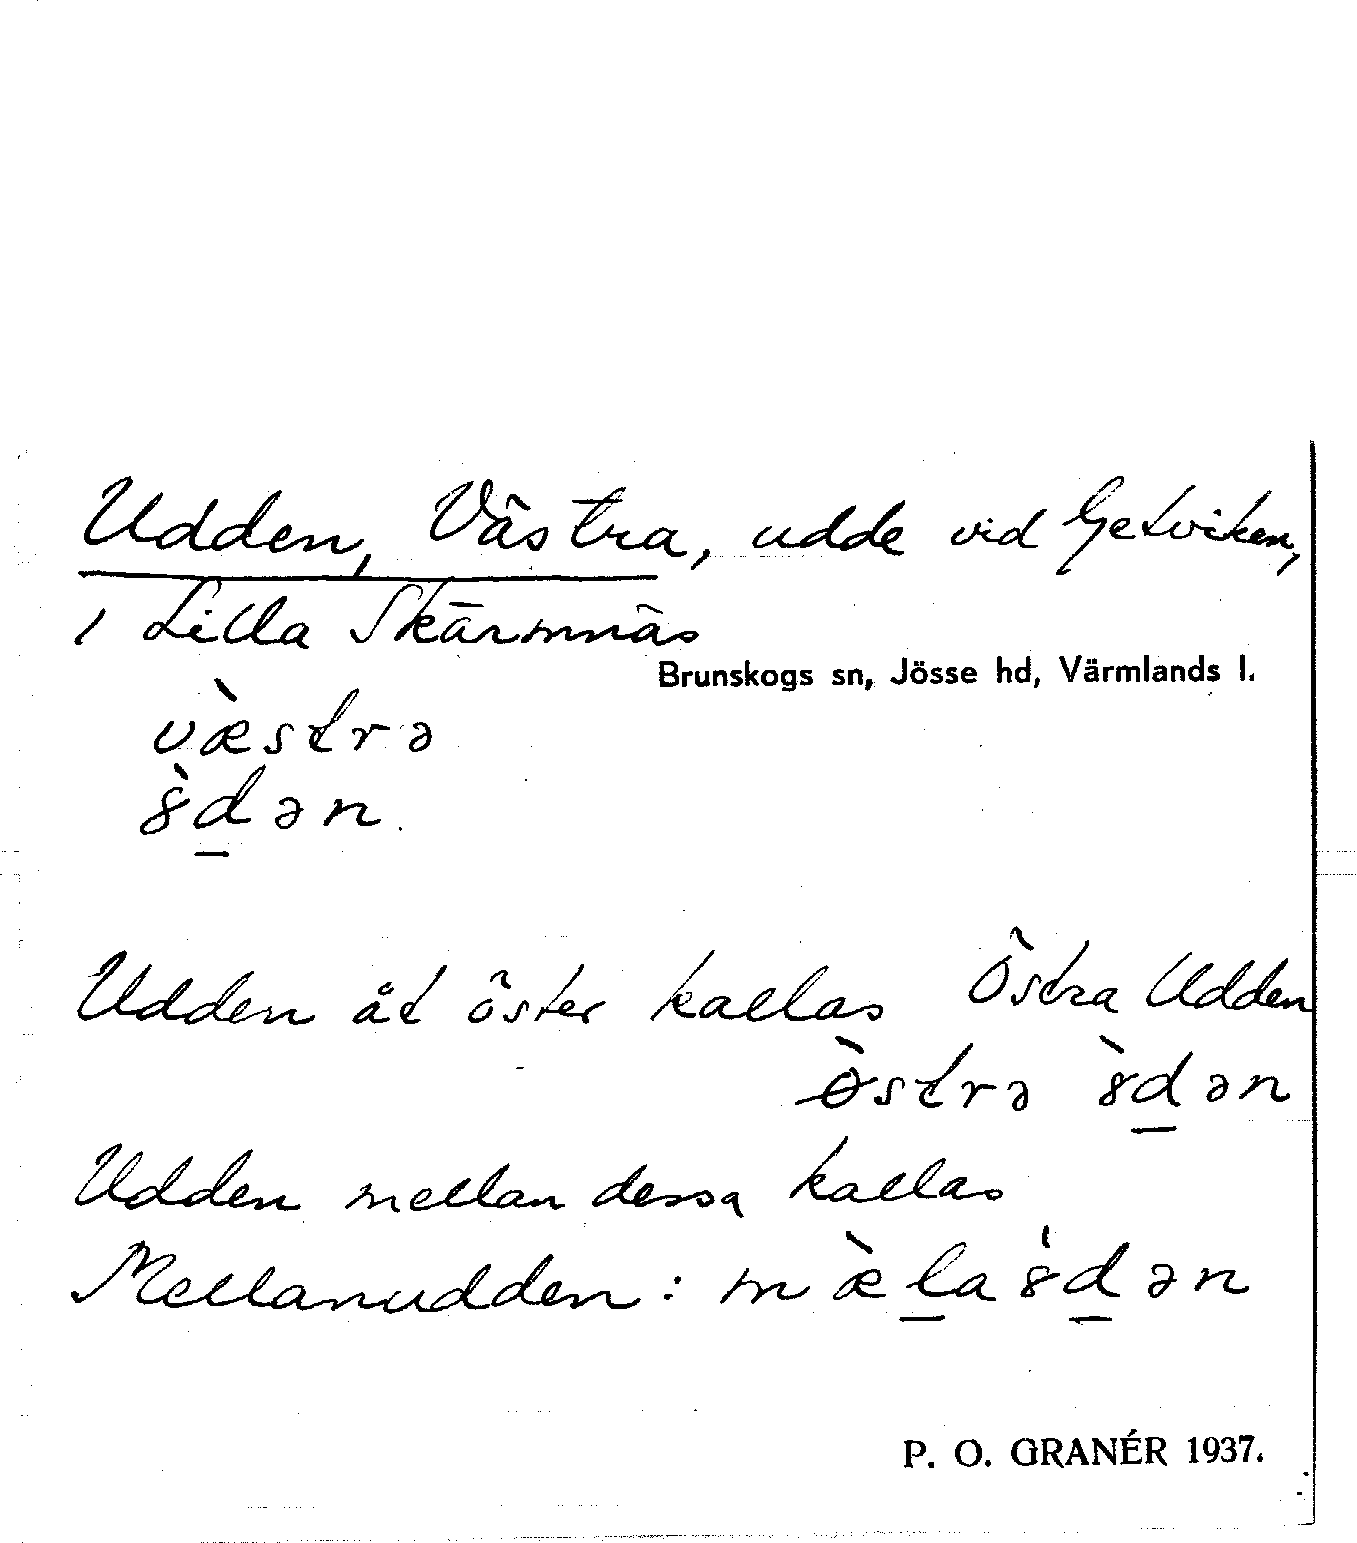 Udden, Västra, udde vid Getviken,
i Lilla Skärmnäs
Brunskogs sn, Jösse hd, Värmlands l.
v̀æstrə
ȣ̀d̲ən
Udden åt öster kallas Östra Udden
ɵ̀strə ȣ̀d̲ən
Udden mellan dessa kallas
Mellanudden: mæ̀l̲aȣ̍d̲ən
P. O. GRANÉR 1937.